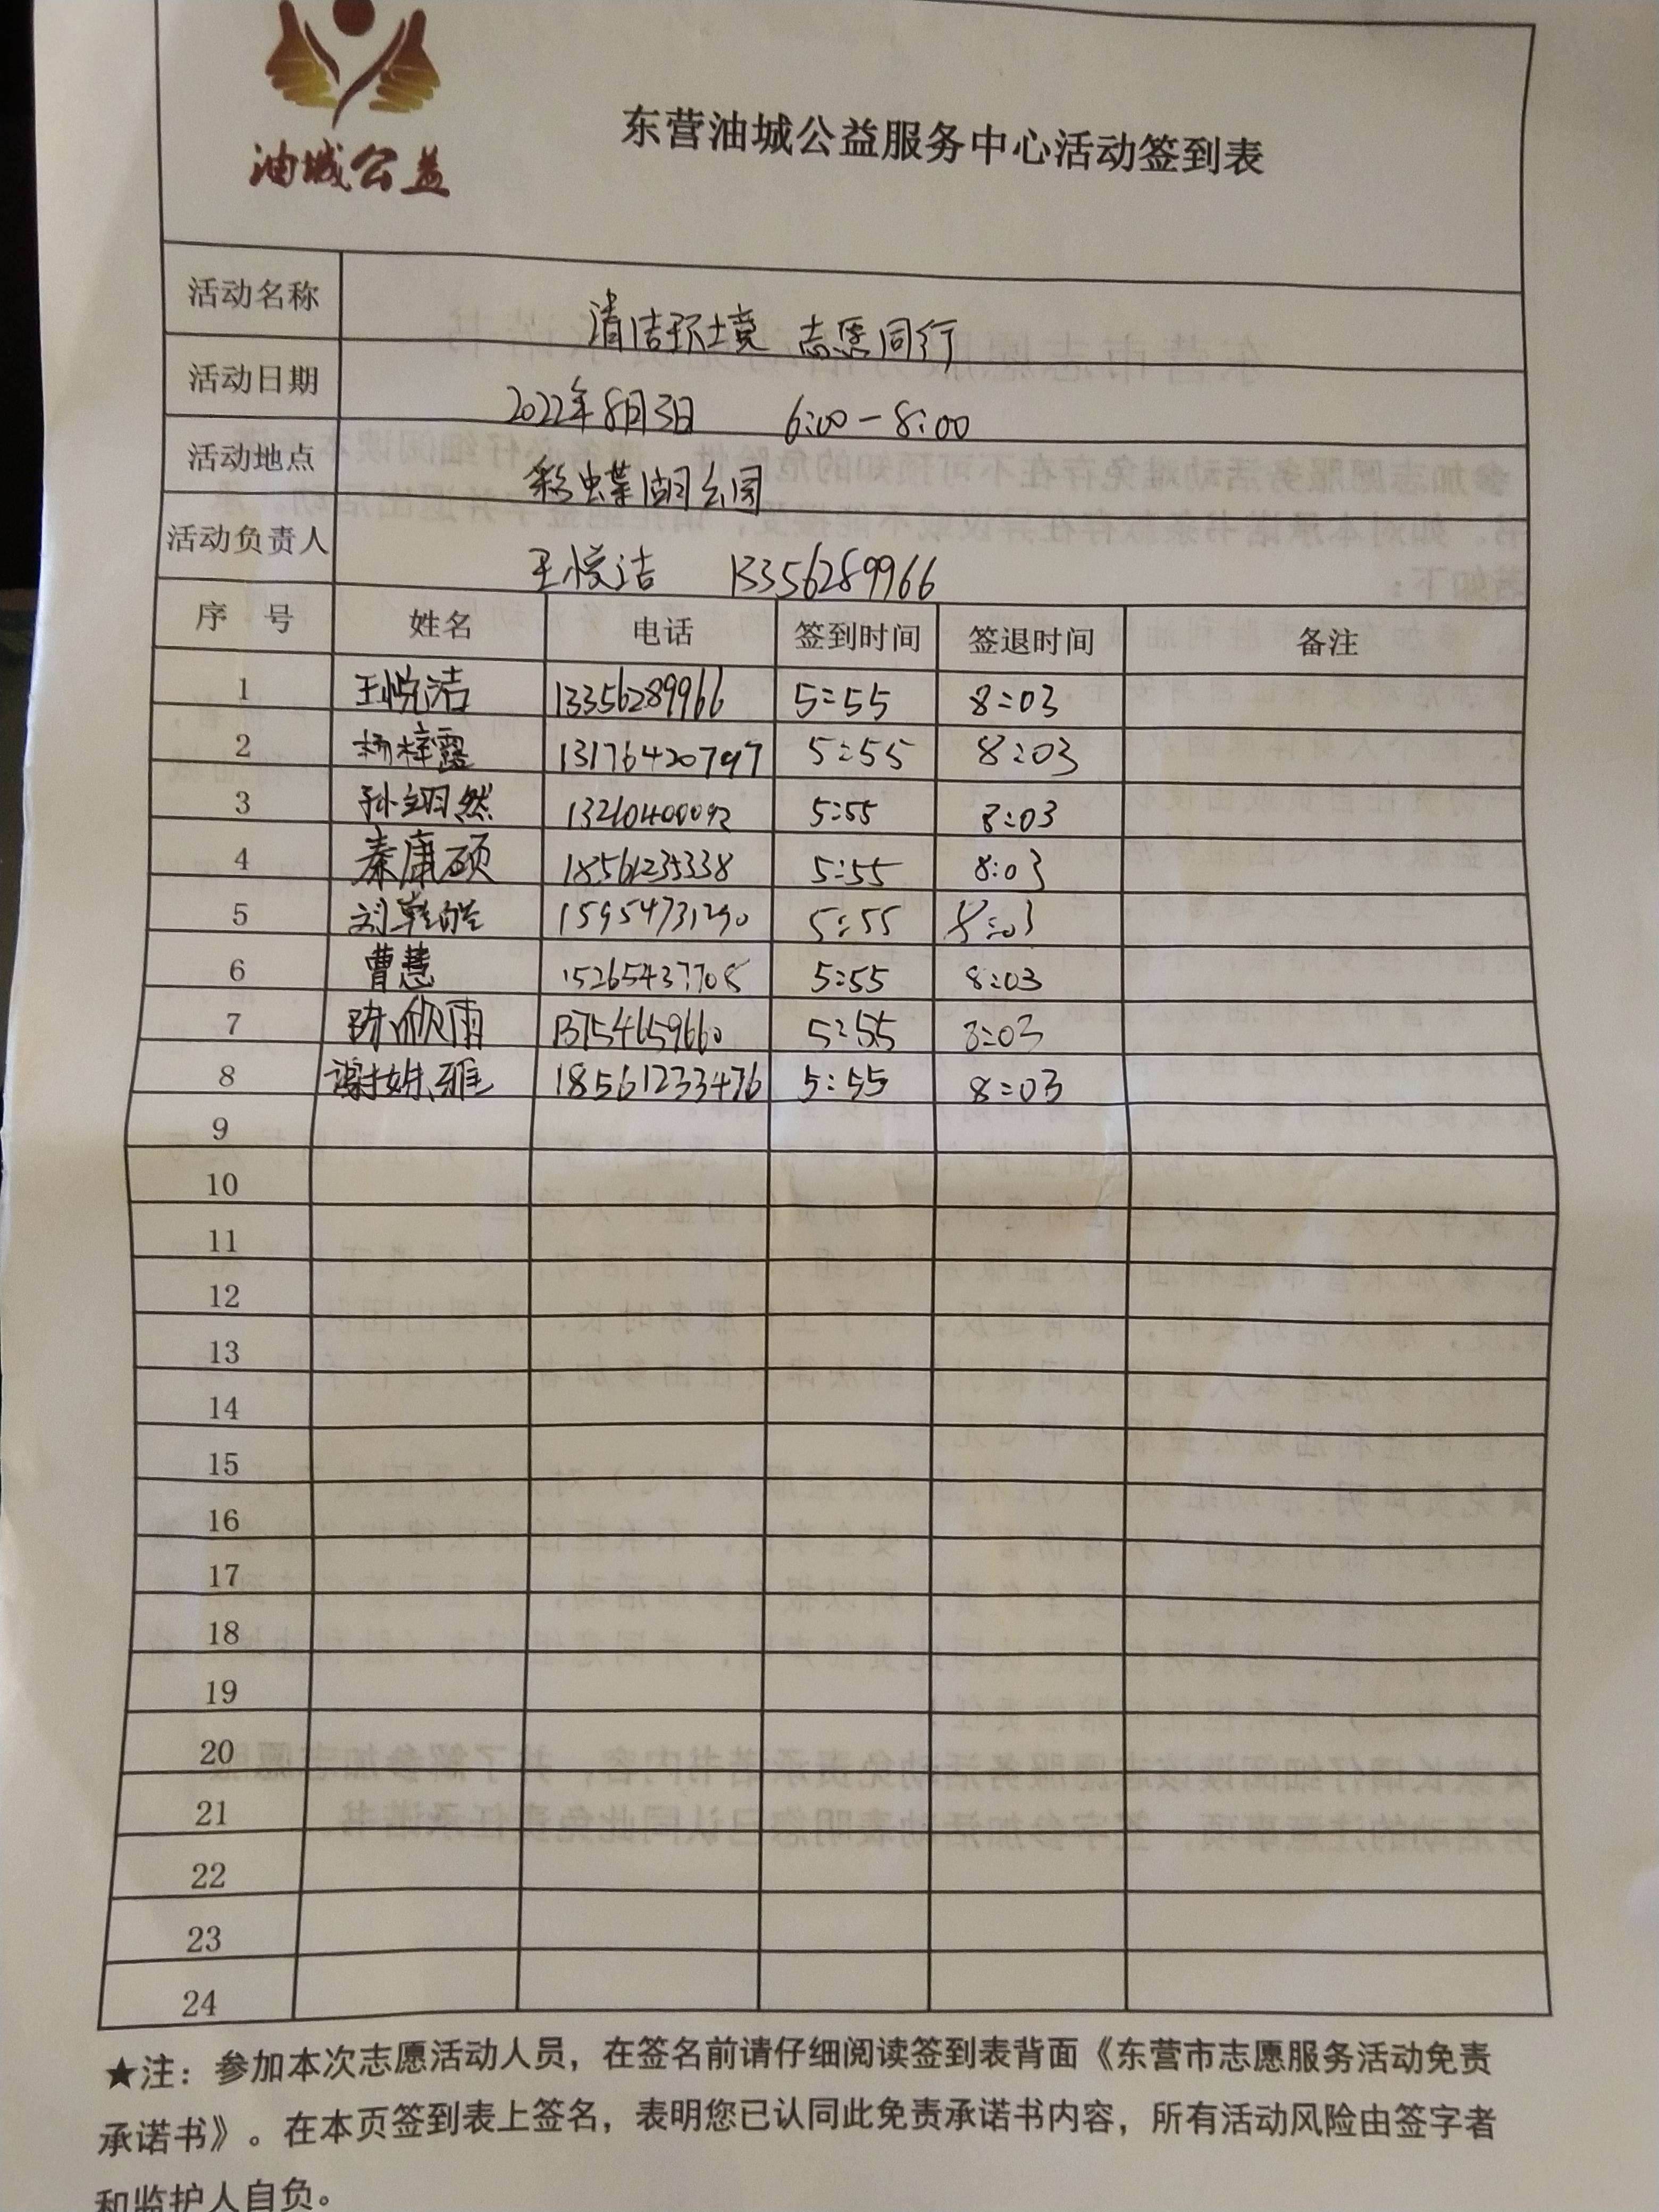 油城公益
东营油城公益服务中心活动签到表
活动名称 清洁环境 志愿同行
活动日期 2022年8月3日 6:00-8:00
活动地点 彩蝶湖公园
活动负责人 王悦洁 13356289966
序 号 姓名 电话 签到时间 签退时间 备注
1 王悦洁 13356289966 5:55 8:03
2 杨梓露 13176420797 5:55 8:03
3 孙翊然 13210400092 5:55 8:03
4 秦康硕 18561235338 5:55 8:03
5 刘乾皓 15954731290 5:55 8:03
6 曹慧 15265437708 5:55 8:03
7 陈欣雨 13754659660 5:55 8:03
8 谢姝雅 18561233476 5:55 8:03
9
10
11
12
13
14
15
16
17
18
19
20
21
22
23
24
★注：参加本次志愿活动人员，在签名前请仔细阅读签到表背面《东营市志愿服务活动免责
承诺书》。在本页签到表上签名，表明您已认同此免责承诺书内容，所有活动风险由签字者
和监护人自负。